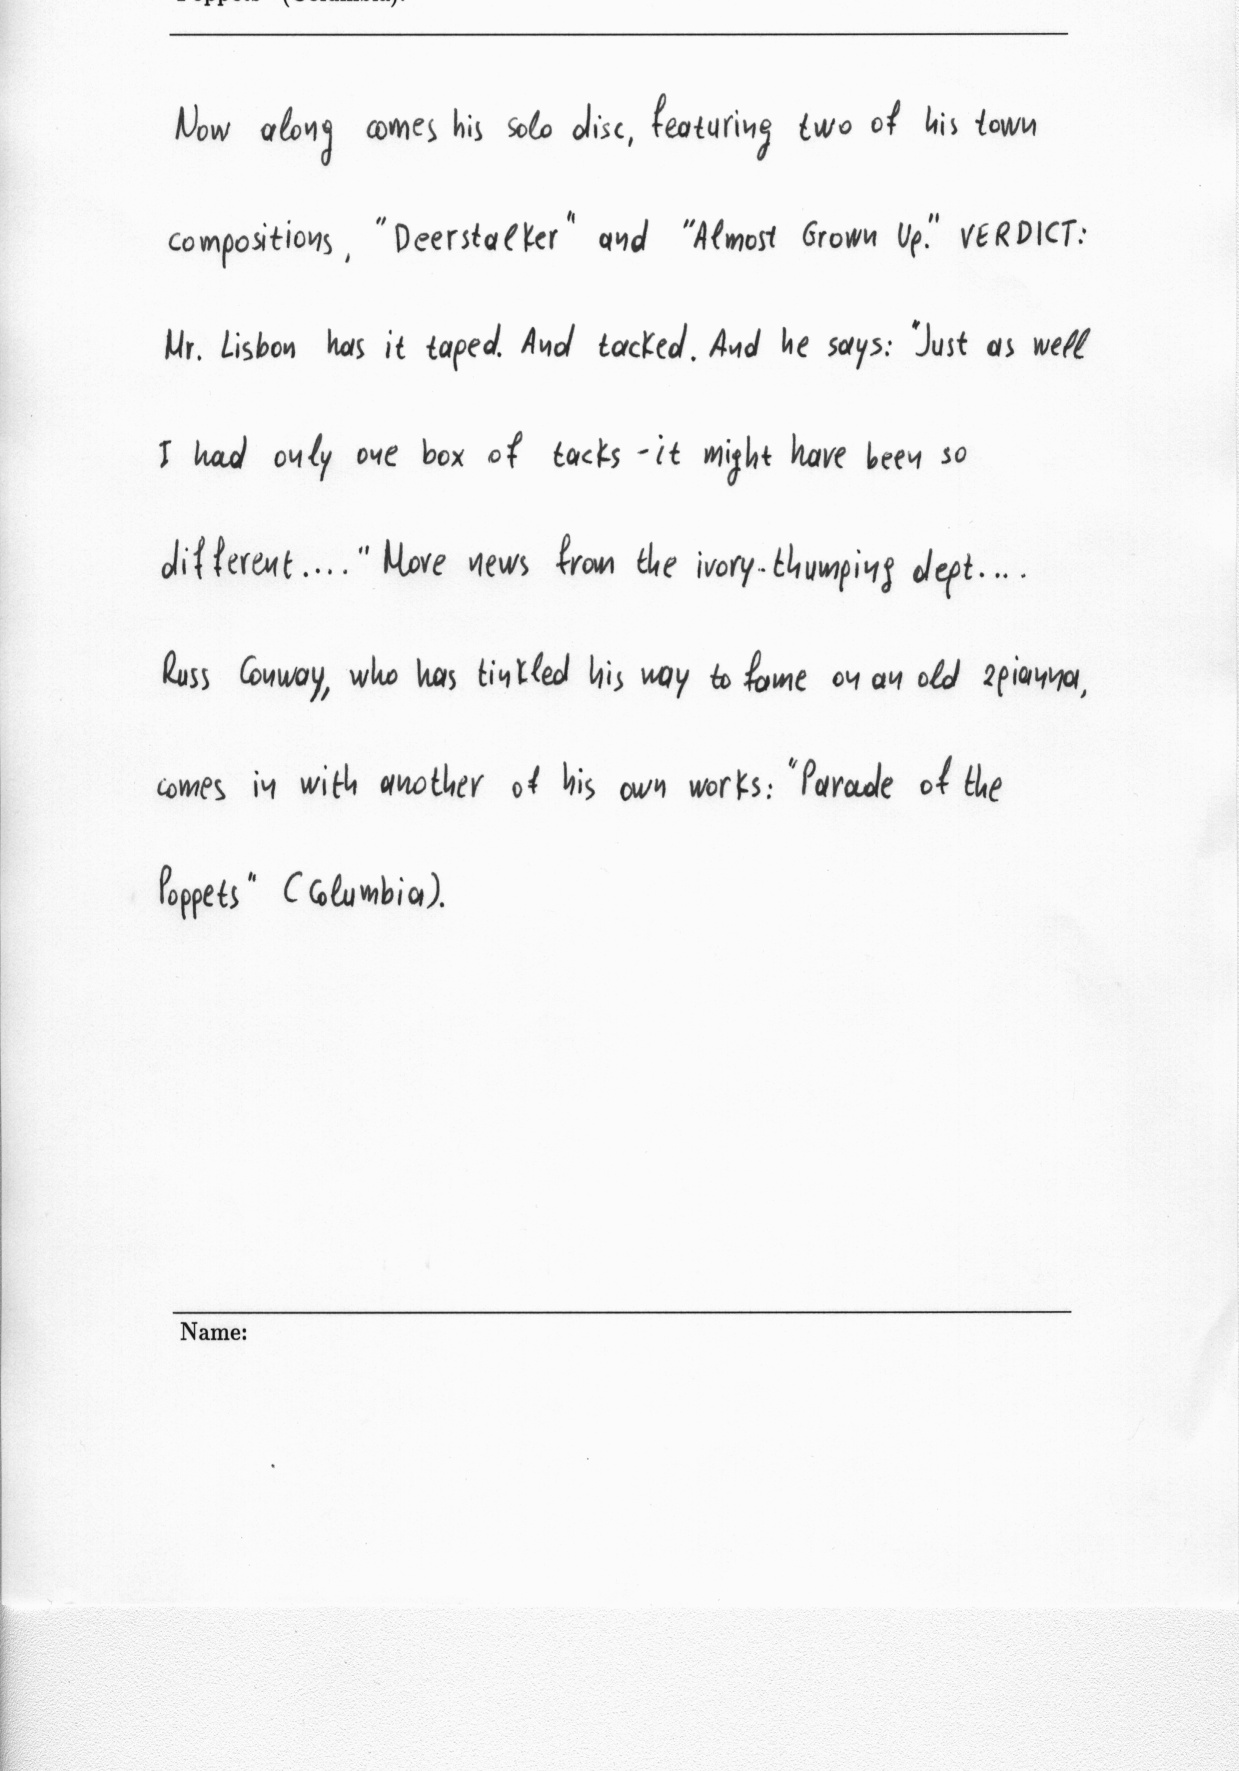 Now along comes his solo disc, featuring two of his town
compositions, "Deerstalker" and "Almost Grown Up." VERDICT:
Mr. Lisbon has it taped. And tacked. And he says: "Just as well
I had only one box of tacks - it might have been so
different...." More news from the ivory-thumping dept....
Russ Conway, who has tinkled his way to fame on an old 2pianna,
comes in with another of his own works: "Parade of the
Poppets" (Columbia).
Name: